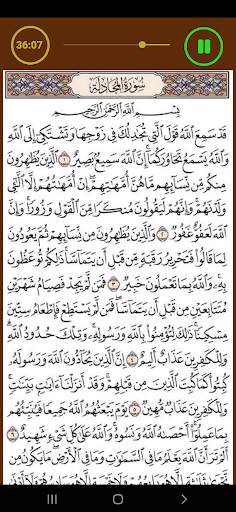 36:07
سُورَةُ المُجَادلَةِ
بِسْمِ اللَّهِ الرَّحْمَٰنِ الرَّحِيمِ
قَدْ سَمِعَ اللَّهُ قَوْلَ الَّتِي تُجَٰدِلُكَ فِي زَوْجِهَا وَتَشْتَكِي إِلَى اللَّهِ
وَاللَّهُ يَسْمَعُ تَحَاوُرَكُمَا إِنَّ اللَّهَ سَمِيعٌ بَصِيرٌ ١ الَّذِينَ يُظَٰهِرُونَ
مِنكُم مِّن نِّسَآئِهِم مَّا هُنَّ أُمَّهَٰتِهِمْ إِنْ أُمَّهَٰتُهُمْ إِلَّا الَّٰٓـِٔي
وَلَدْنَهُمْ وَإِنَّهُمْ لَيَقُولُونَ مُنكَرًا مِّنَ الْقَوْلِ وَزُورًا وَإِنَّ
اللَّهَ لَعَفُوٌّ غَفُورٌ ٢ وَالَّذِينَ يُظَٰهِرُونَ مِن نِّسَآئِهِمْ ثُمَّ يَعُودُونَ
لِمَا قَالُوا فَتَحْرِيرُ رَقَبَةٍ مِّن قَبْلِ أَن يَتَمَآسَّا ذَٰلِكُمْ تُوعَظُونَ
بِهِ وَاللَّهُ بِمَا تَعْمَلُونَ خَبِيرٌ ٣ فَمَن لَّمْ يَجِدْ فَصِيَامُ شَهْرَيْنِ
مُتَتَابِعَيْنِ مِن قَبْلِ أَن يَتَمَآسَّا فَمَن لَّمْ يَسْتَطِعْ فَإِطْعَامُ سِتِّينَ
مِسْكِينًا ذَٰلِكَ لِتُؤْمِنُوا بِاللَّهِ وَرَسُولِهِ وَتِلْكَ حُدُودُ اللَّهِ
وَلِلْكَٰفِرِينَ عَذَابٌ أَلِيمٌ ٤ إِنَّ الَّذِينَ يُحَآدُّونَ اللَّهَ وَرَسُولَهُ
كُبِتُوا كَمَا كُبِتَ الَّذِينَ مِن قَبْلِهِمْ وَقَدْ أَنزَلْنَآ ءَايَٰتٍ بَيِّنَٰتٍ
وَلِلْكَٰفِرِينَ عَذَابٌ مُّهِينٌ ٥ يَوْمَ يَبْعَثُهُمُ اللَّهُ جَمِيعًا فَيُنَبِّئُهُم
بِمَا عَمِلُوا أَحْصَىٰهُ اللَّهُ وَنَسُوهُ وَاللَّهُ عَلَىٰ كُلِّ شَيْءٍ شَهِيدٌ ٦
أَلَمْ تَرَ أَنَّ اللَّهَ يَعْلَمُ مَا فِي السَّمَٰوَٰتِ وَمَا فِي الْأَرْضِ مَا يَكُونُ مِن